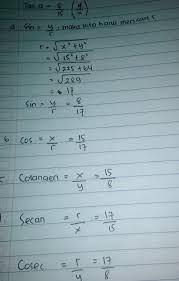 Tan α = 8/15 (y/x)
a. Sin = y/r, maka kita harus mencari r
r = √x² + y²
= √15² + 8²
= √225 + 64
= √289
= 17
Sin = y/r = 8/17
b. Cos = x/r = 15/17
c. Cotangen = x/y = 15/8
Secan = r/x = 17/15
Cosec = r/y = 17/8